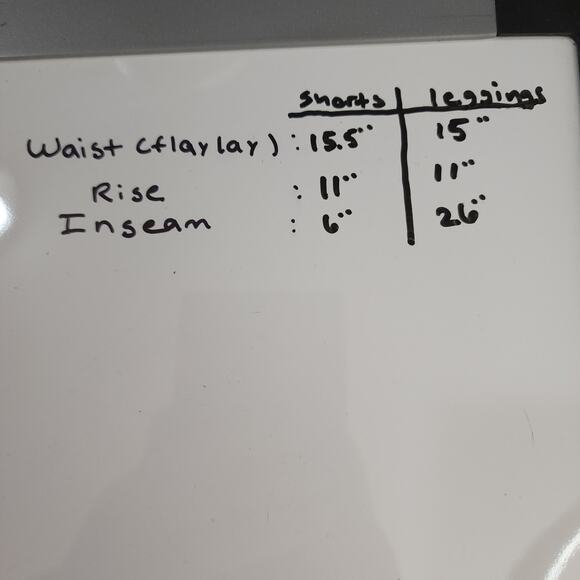 shorts | leggings
Waist (flaylay) : 15.5" 15"
Rise : 11" 11"
Inseam : 6" 26"